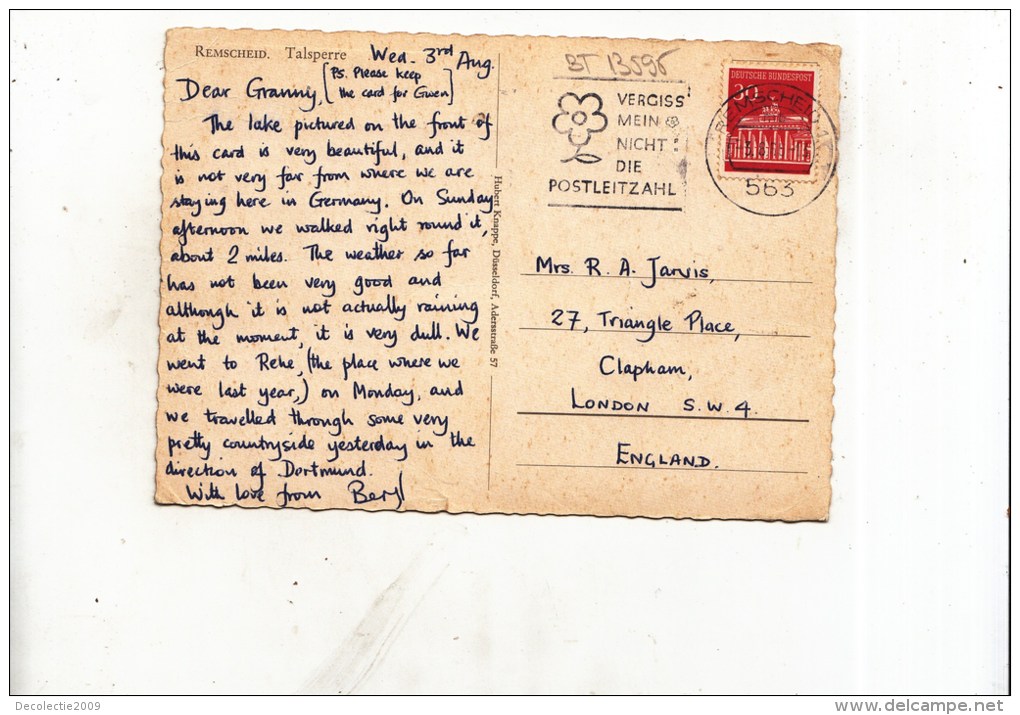 REMSCHEID. Talsperre
Wed. 3rd Aug.
Dear Granny,
[P.S. Please keep
the card for Gwen]
The lake pictured on the front of
this card is very beautiful, and it
is not very far from where we are
staying here in Germany. On Sunday
afternoon we walked right round it,
about 2 miles. The weather so far
has not been very good and
although it is not actually raining
at the moment, it is very dull. We
went to Rehe, (the place where we
were last year,) on Monday, and
we travelled through some very
pretty countryside yesterday in the
direction of Dortmund.
With love from Beryl
Hubert Knappe, Düsseldorf, Adersstraße 57
BT 13596
VERGISS
MEIN
NICHT
DIE
POSTLEITZAHL
DEUTSCHE BUNDESPOST
30
REMSCHEID 1
563
Mrs. R. A. Jarvis,
27, Triangle Place,
Clapham,
LONDON S.W.4.
ENGLAND.
Decolectie2009
www.delcampe.net